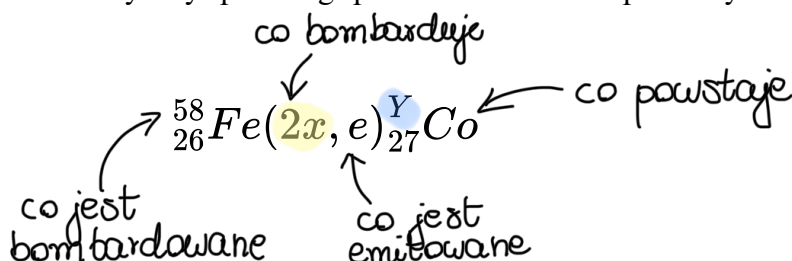 co bombarduje
$^{58}_{26}Fe(2x, e)^{Y}_{27}Co$
co powstaje
co jest
bombardowane
co jest
emitowane